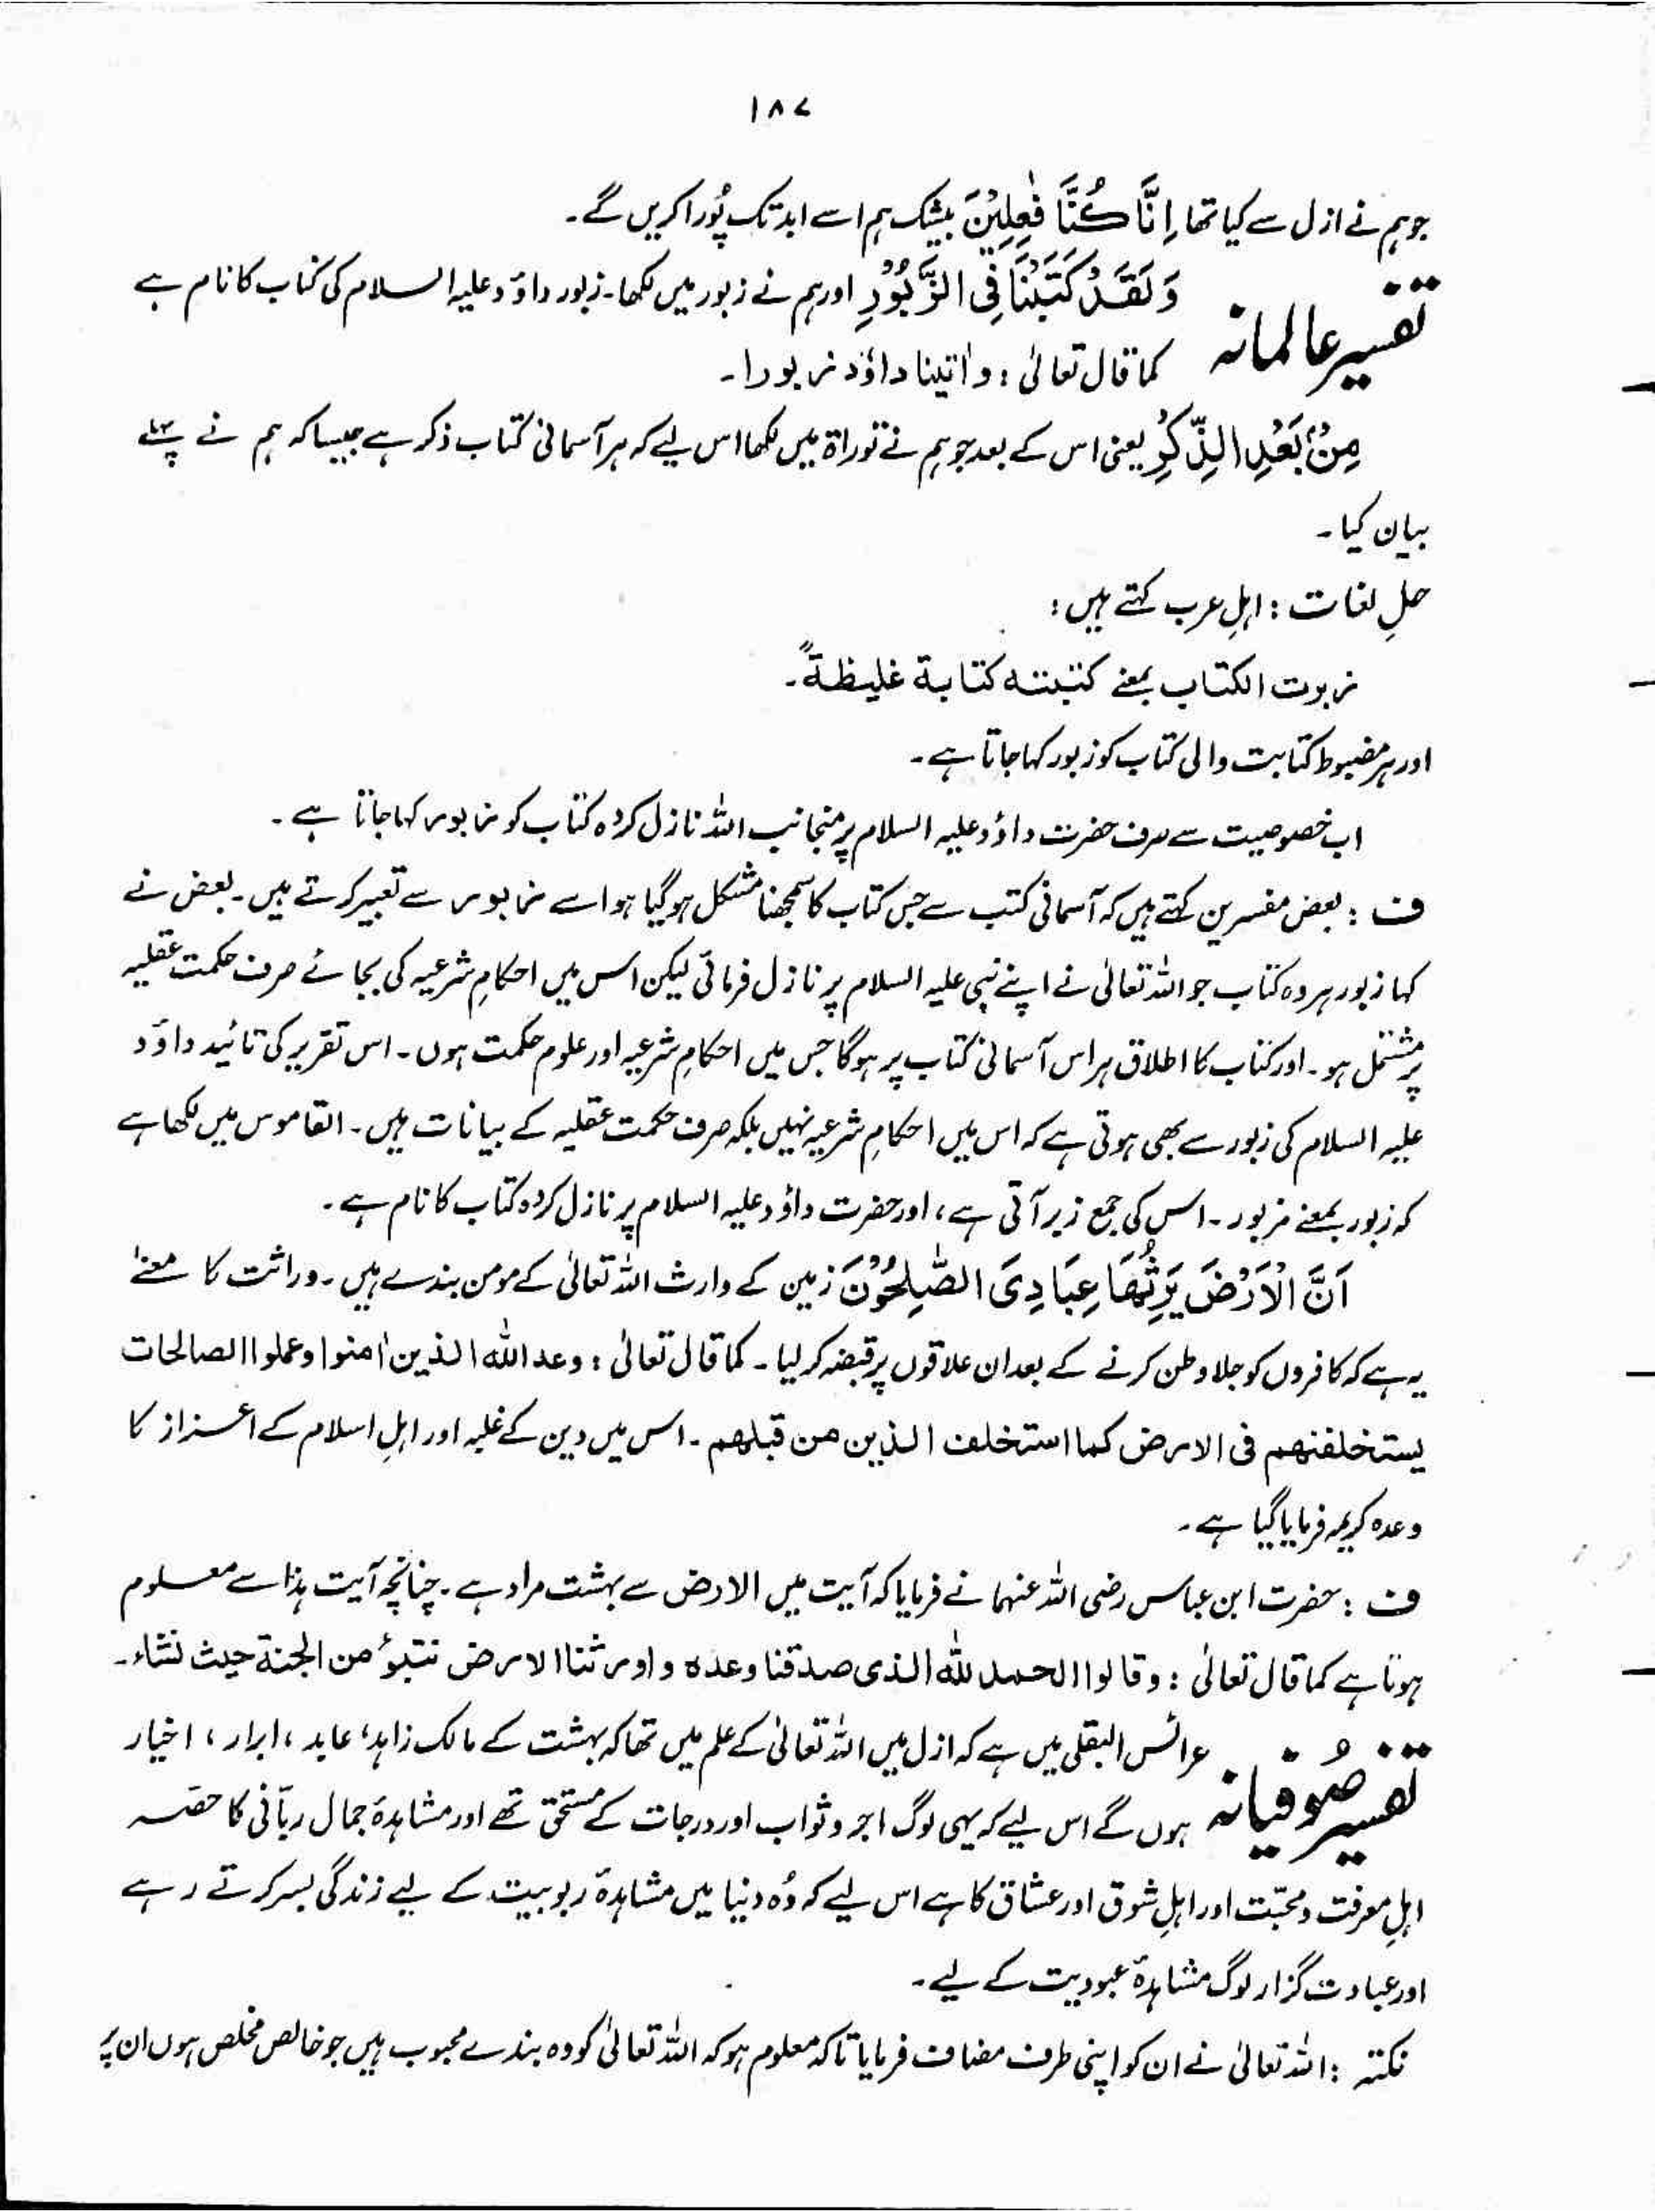 ۱۸۷
جو ہم نے ازل سے کیا تھا اِنَّا كُنَّا فٰعِلِيْنَ بیشک ہم اسے ابد تک پُورا کریں گے۔
تفسیر عالمانہ وَ لَقَدْ كَتَبْنَا فِی الزَّبُوْرِ اور ہم نے زبور میں لکھا۔ زبور داؤد علیہ السلام کی کتاب کا نام ہے
کما قال تعالیٰ : و اٰتینا داؤد زبورا۔
مِنْۢ بَعْدِ الذِّكْرِ یعنی اس کے بعد جو ہم نے توراۃ میں لکھا اس لیے کہ ہر آسمانی کتاب ذکر ہے جیسا کہ ہم نے پہلے
بیان کیا۔
حلِ لغات : اہلِ عرب کہتے ہیں :
زبوت الکتاب بمعنے کتبتہ کتابة غلیظةً۔
اور ہر مضبوط کتابت والی کتاب کو زبور کہا جاتا ہے۔
اب خصوصیت سے صرف حضرت داؤد علیہ السلام پر منجانب اللہ نازل کردہ کتاب کو زبور کہا جاتا ہے۔
ف : بعض مفسرین کہتے ہیں کہ آسمانی کتب سے جس کتاب کا سمجھنا مشکل ہو گیا ہو اسے زبور سے تعبیر کرتے ہیں۔ بعض نے
کہا زبور ہر وہ کتاب جو اللہ تعالیٰ نے اپنے نبی علیہ السلام پر نازل فرمائی لیکن اس میں احکامِ شرعیہ کی بجائے صرف حکمت عقلیہ
پر مشتمل ہو۔ اور کتاب کا اطلاق ہر اس آسمانی کتاب پر ہوگا جس میں احکامِ شرعیہ اور علوم حکمت ہوں۔ اس تقریر کی تائید داؤد
علیہ السلام کی زبور سے بھی ہوتی ہے کہ اس میں احکامِ شرعیہ نہیں بلکہ صرف حکمت عقلیہ کے بیانات ہیں۔ القاموس میں لکھا ہے
کہ زبور بمعنے مزبور۔ اس کی جمع زبر آتی ہے، اور حضرت داؤد علیہ السلام پر نازل کردہ کتاب کا نام ہے۔
اَنَّ الْاَرْضَ يَرِثُهَا عِبَادِیَ الصّٰلِحُوْنَ زمین کے وارث اللہ تعالیٰ کے مومن بندے ہیں۔ وراثت کا معنےٰ
یہ ہے کہ کافروں کو جلا وطن کرنے کے بعد ان علاقوں پر قبضہ کر لیا۔ کما قال تعالیٰ : وعد اللہ الذین اٰمنوا وعملوا الصالحات
یستخلفنهم فی الارض کما استخلف الذین من قبلهم۔ اس میں دین کے غلبہ اور اہلِ اسلام کے اعزاز کا
وعدہ کریمہ فرمایا گیا ہے۔
ف : حضرت ابن عباس رضی اللہ عنہما نے فرمایا کہ آیت میں الارض سے بہشت مراد ہے۔ چنانچہ آیت ہذا سے معلوم
ہوتا ہے کما قال تعالیٰ : وقالوا الحمد للہ الذی صدقنا وعدہ و اورثنا الارض نتبوٴ من الجنة حیث نشاء۔
تفسیر صُوفیانہ عرائس البقلی میں ہے کہ ازل میں اللہ تعالیٰ کے علم میں تھا کہ بہشت کے مالک زاہد، عابد، ابرار، اخیار
ہوں گے اس لیے کہ یہی لوگ اجر و ثواب اور درجات کے مستحق تھے اور مشاہدۂ جمال ربّانی کا حصّہ
اہلِ معرفت و محبّت اور اہلِ شوق اور عشاق کا ہے اس لیے کہ وُہ دنیا میں مشاہدۂ ربوبیت کے لیے زندگی بسر کرتے رہے
اور عبادت گزار لوگ مشاہدۂ عبودیت کے لیے۔
نکتہ : اللہ تعالیٰ نے ان کو اپنی طرف مضاف فرمایا تاکہ معلوم ہو کہ اللہ تعالیٰ کو وہ بندے محبوب ہیں جو خالص مخلص ہوں ان پر